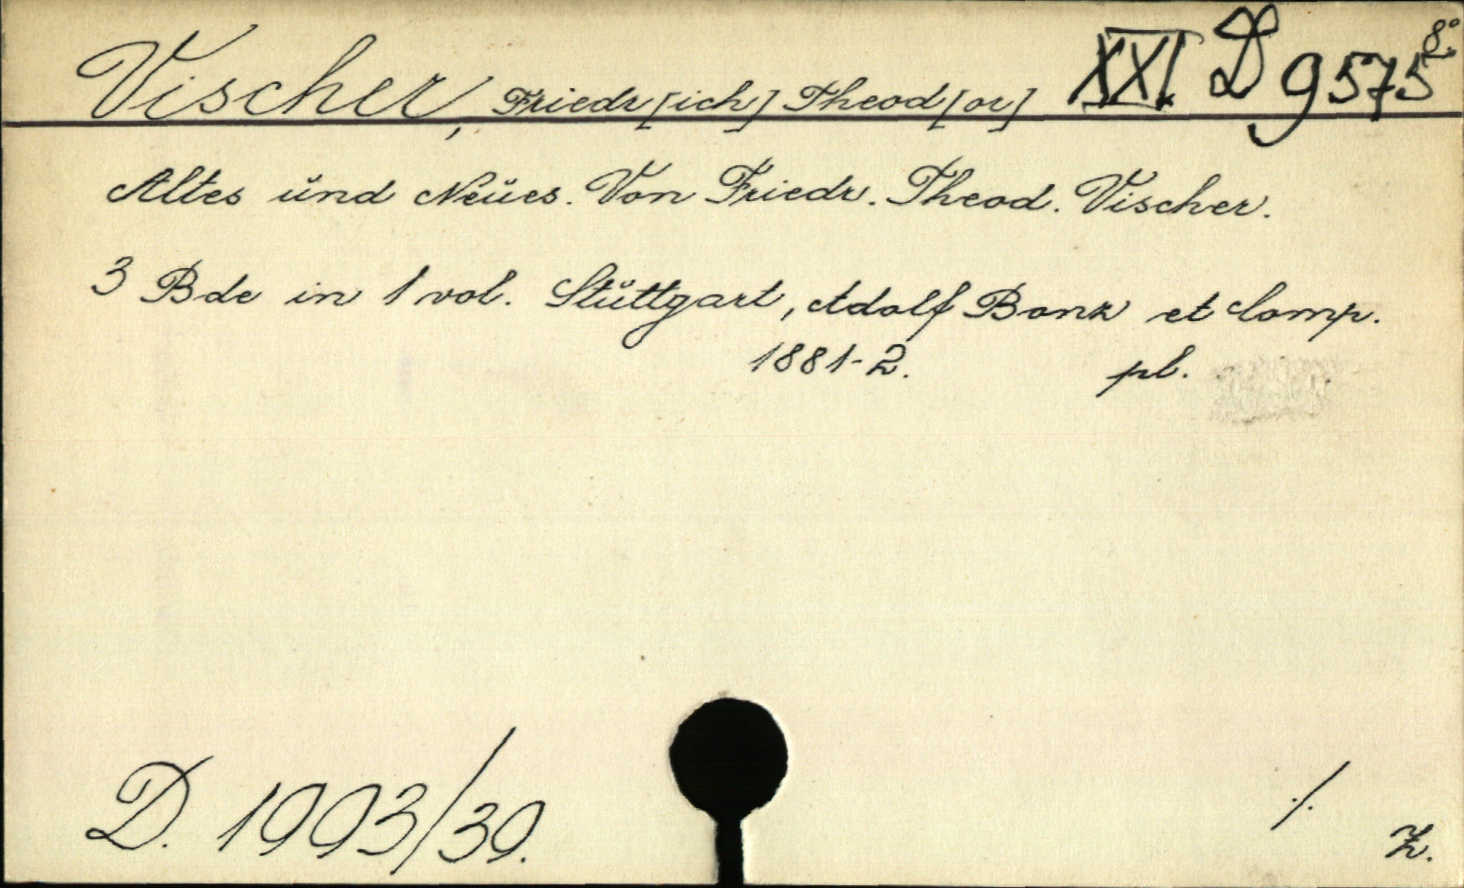 Vischer, Friedr[ich] Theod[or] XXI D 9575 8°
Altes und Neues. Von Friedr. Theod. Vischer.
3 Bde in 1 vol. Stuttgart, Adolf Bonz et Comp.
1881-2. pl.
D. 1993/39.
./.
Z.